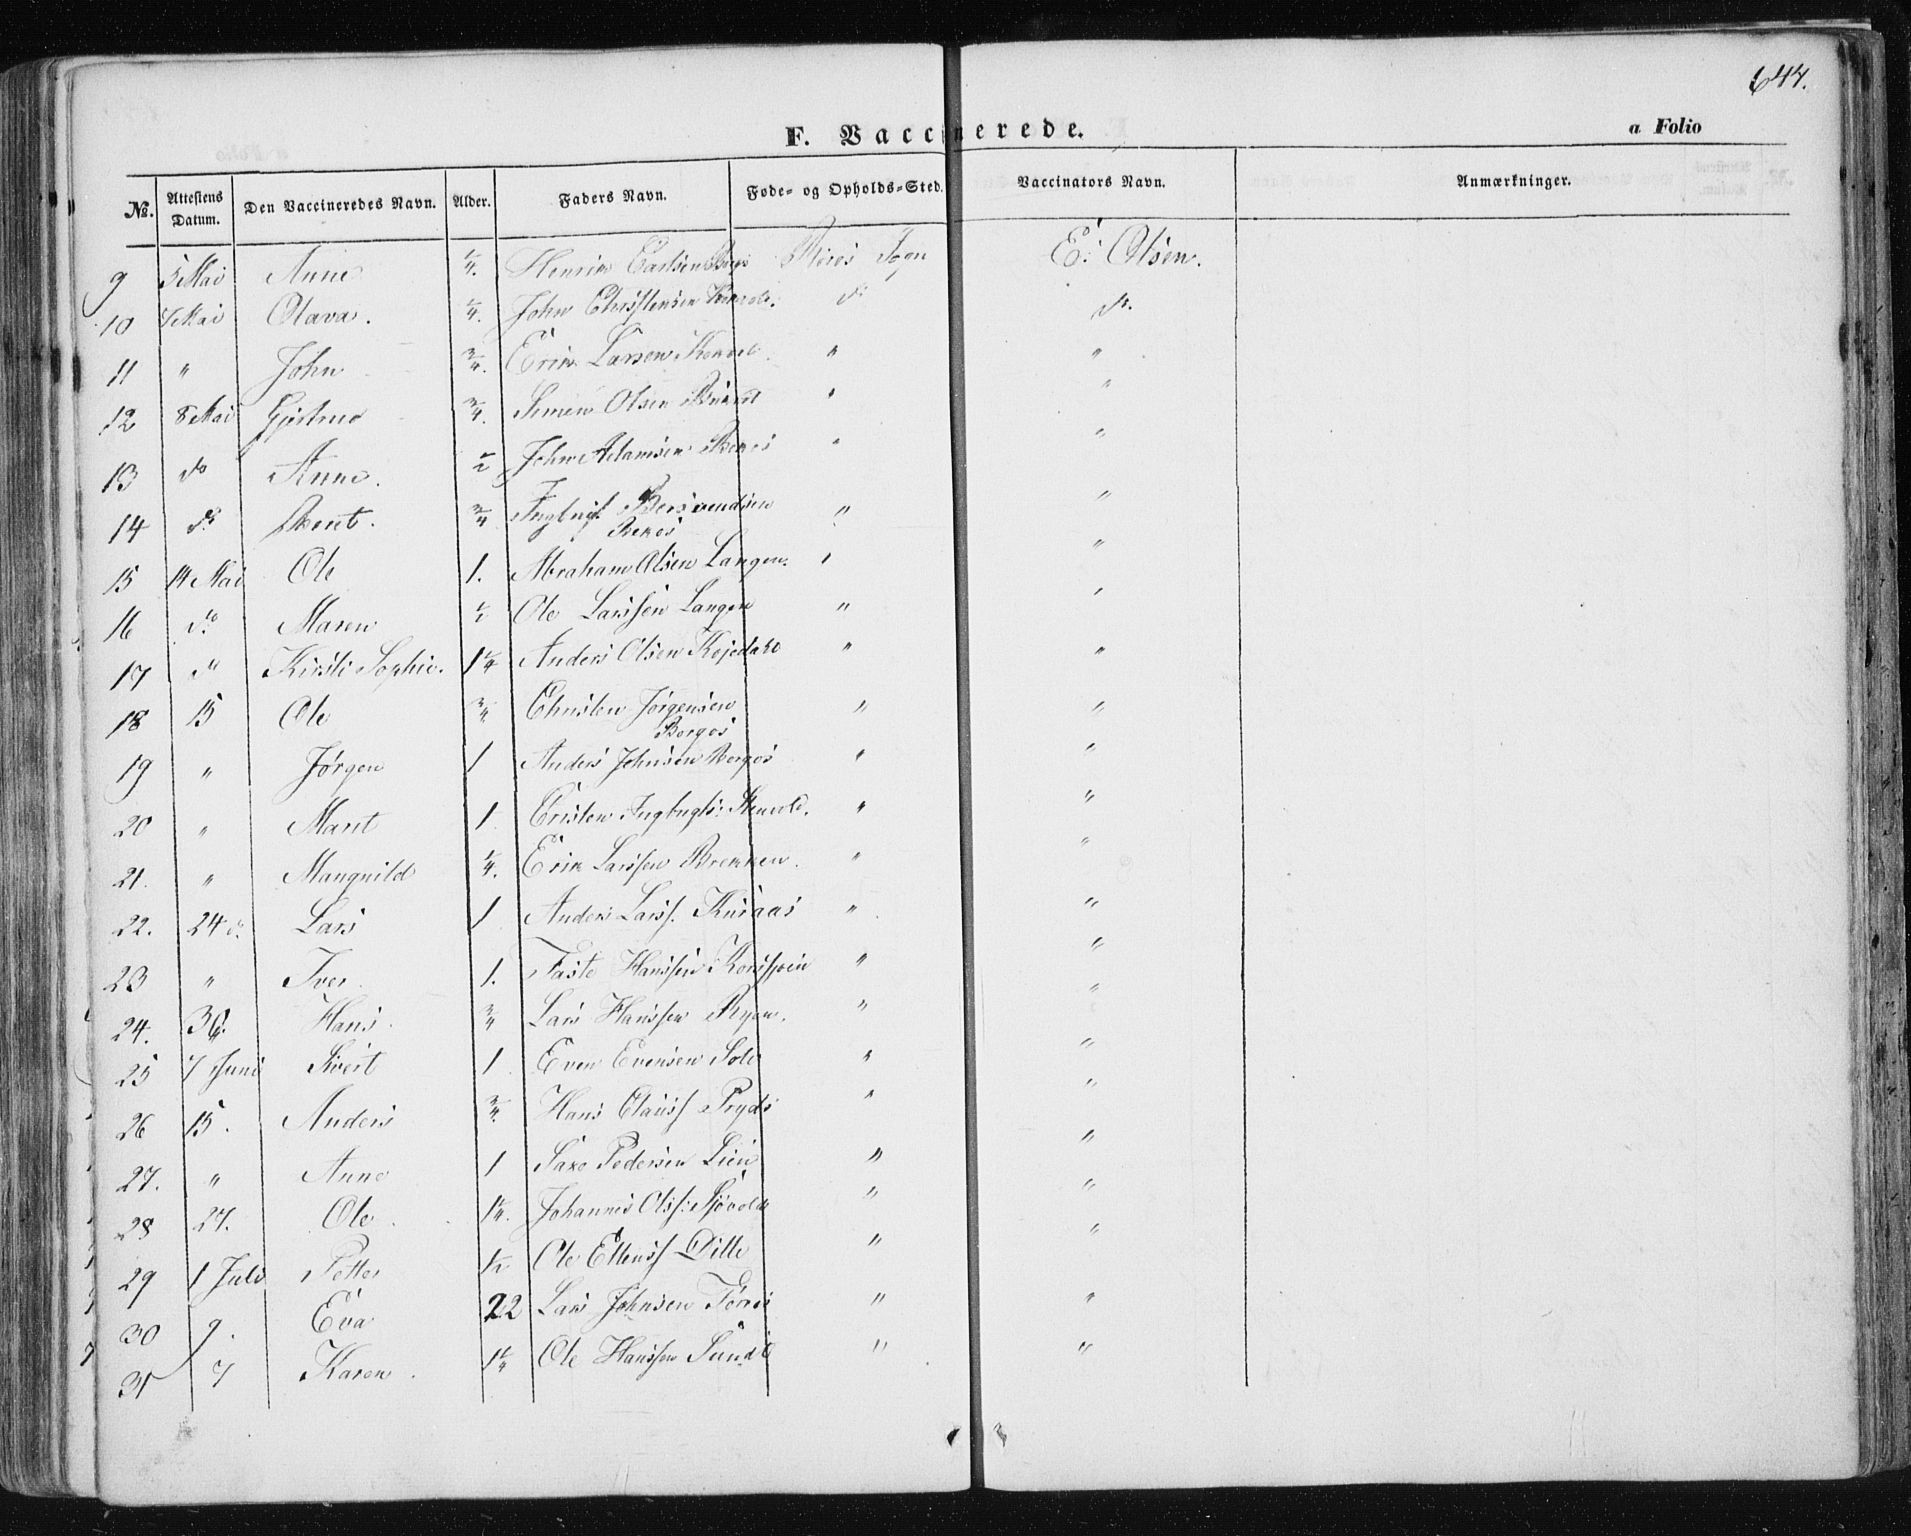 644.
F. Vaccinerede.
a Folio
No. Attestens Datum. Den Vaccineredes Navn. Alder. Faders Navn. Føde- og Opholds-Sted. Vaccinators Navn. Anmærkninger.
9 5 Mai Anne 1/4. Henrik Carlsen Røros Sogn E. Olsen.
10 7 Mai Olava. 1/4. John Christensen do do.
11 " John 3/4. Erik Larsen " "
12 8 Mai Gjertrud 3/4. Simen Olsen " "
13 do Anne. 1/2 John Adamsen " "
14 do Bent. 3/4 Ingbrigt Bersvendsen " "
15 14 Mai Ole 1. Abraham Olsen Langen. " "
16 do Maren 1/2 Ole Larssen Langen " "
17 do Kirsti Sophie. 1 1/4 Anders Olsen " "
18 15 Ole 3/4. Christen Jørgensen " "
Borgos
19 " Jørgen 1 Anders Johnsen Borgos " "
20 " Marit 1 Cristen Ingbrigts: " "
21. " Mangnild 1/4. Erik Larssen Brekken. " "
22. 24 d. Lars 1 Anders Larss. Kuraas " "
23 " Iver. 1. Faste Hanssen " "
24. 30. Hans. 3/4 Lars Hanssen Ryen. " "
25 7 Juni Sivert 1 Even Evensen " "
26 15. Anders 3/4. Hans Clauss. Pryds " "
27. " Anne 1 Saxe Pedersen Lien " "
28 27. Ole. 1 1/4. Johannes Olss: Sjøvold " "
29 1 Juli Petter 1/2 Ole Ellenss. " "
30 9. Eva 22 Lars Johnsen " "
31 7 Karen. 1 1/4 Ole Hanssen Sundt " "